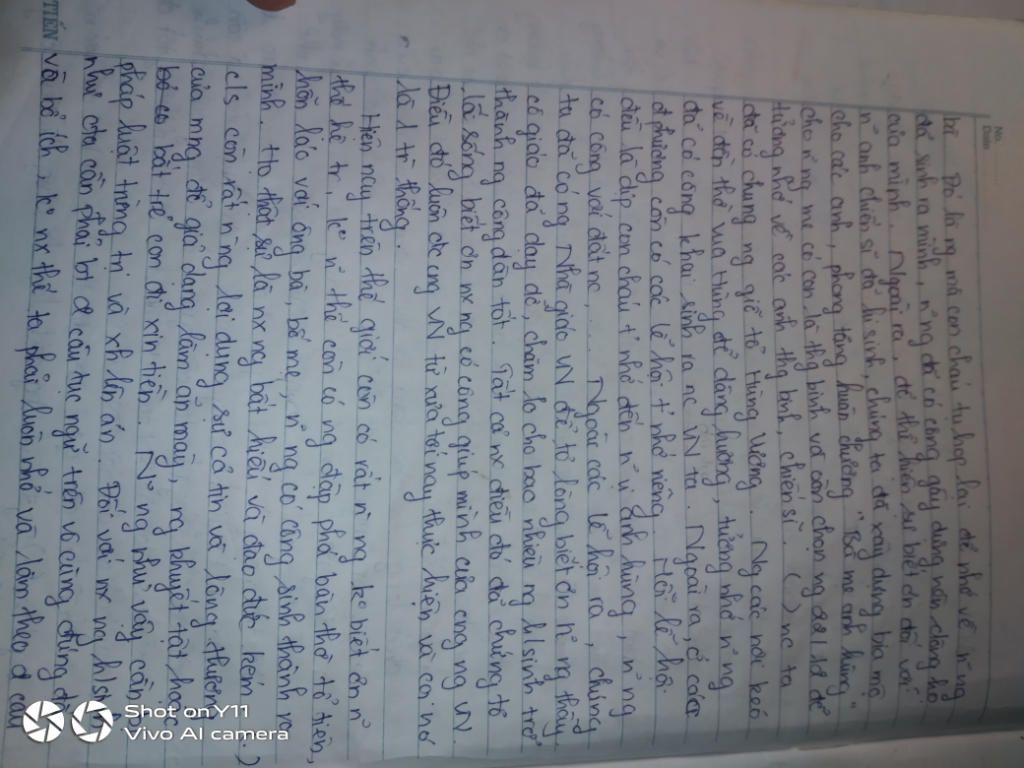 No.
Date
bố Đó là ng mà con cháu tụ họp lại để nhớ về n~ ng
đã sinh ra mình, n~ ng đã có công gây dựng nên dòng họ
của mình. Ngoài ra, để thể hiện sự biết ơn đối với
n~ anh chiến sĩ đã hi sinh, chúng ta đã xây dựng bia mộ
cho các anh, phong tặng huân chương "Bà mẹ anh hùng"
cho n~ ng mẹ có con là thg binh và còn chọn ng 27/7 để
tưởng nhớ về các anh thg binh, chiến sĩ. ( ) nc ta
đã có chung ng giỗ tổ Hùng Vương. Ng các nơi kéo
về đền thờ vua Hùng để dâng hương, tưởng nhớ n~ ng
đã có công khai sinh ra nc VN ta. Ngoài ra, ở các
địa phương còn có các lễ hội t~ nhớ riêng. Mỗi lễ hội
đều là dịp con cháu t~ nhớ đến n~ vị anh hùng, n~ ng
có công với đất nc,... Ngoài các lễ hội ra, chúng
ta đã có ng Nhà giáo VN để tỏ lòng biết ơn n~ ng thầy,
cô giáo đã dạy dỗ, chăm lo cho bao nhiêu ng h/sinh trở
thành ng công dân tốt. Tất cả nx điều đó đã chứng tỏ
lối sống biết ơn nx ng có công giúp mình của cng ng VN.
Điều đó luôn đc cng VN từ xưa tới nay thực hiện và coi nó
là 1 tr~ thống.
Hiện nay trên thế giới còn có rất n` ng ko biết ơn n~
thế hệ tr', ko n~ thế còn có ng đập phá bàn thờ tổ tiên,
hỗn láo với ông bà, bố mẹ, n~ ng có công sinh thành ra
mình. Họ thật sự là nx ng bất hiếu và đạo đức kém.
c/s còn rất n` ng lợi dụng sự cả tin và lòng thương
của mng để giả dạng làm ăn mày, ng khuyết tật hoặc
bắt trẻ con đi xin tiền. N~ ng như vậy cần
pháp luật trừng trị và xh lên án. Đối với nx ng h/sinh
như cta cần phải bt đ câu tục ngữ trên vô cùng đúng đắn
và bổ ích, ko nx thế ta phải luôn nhớ và làm theo đ câu
TIẾN
Shot on Y11
Vivo AI camera